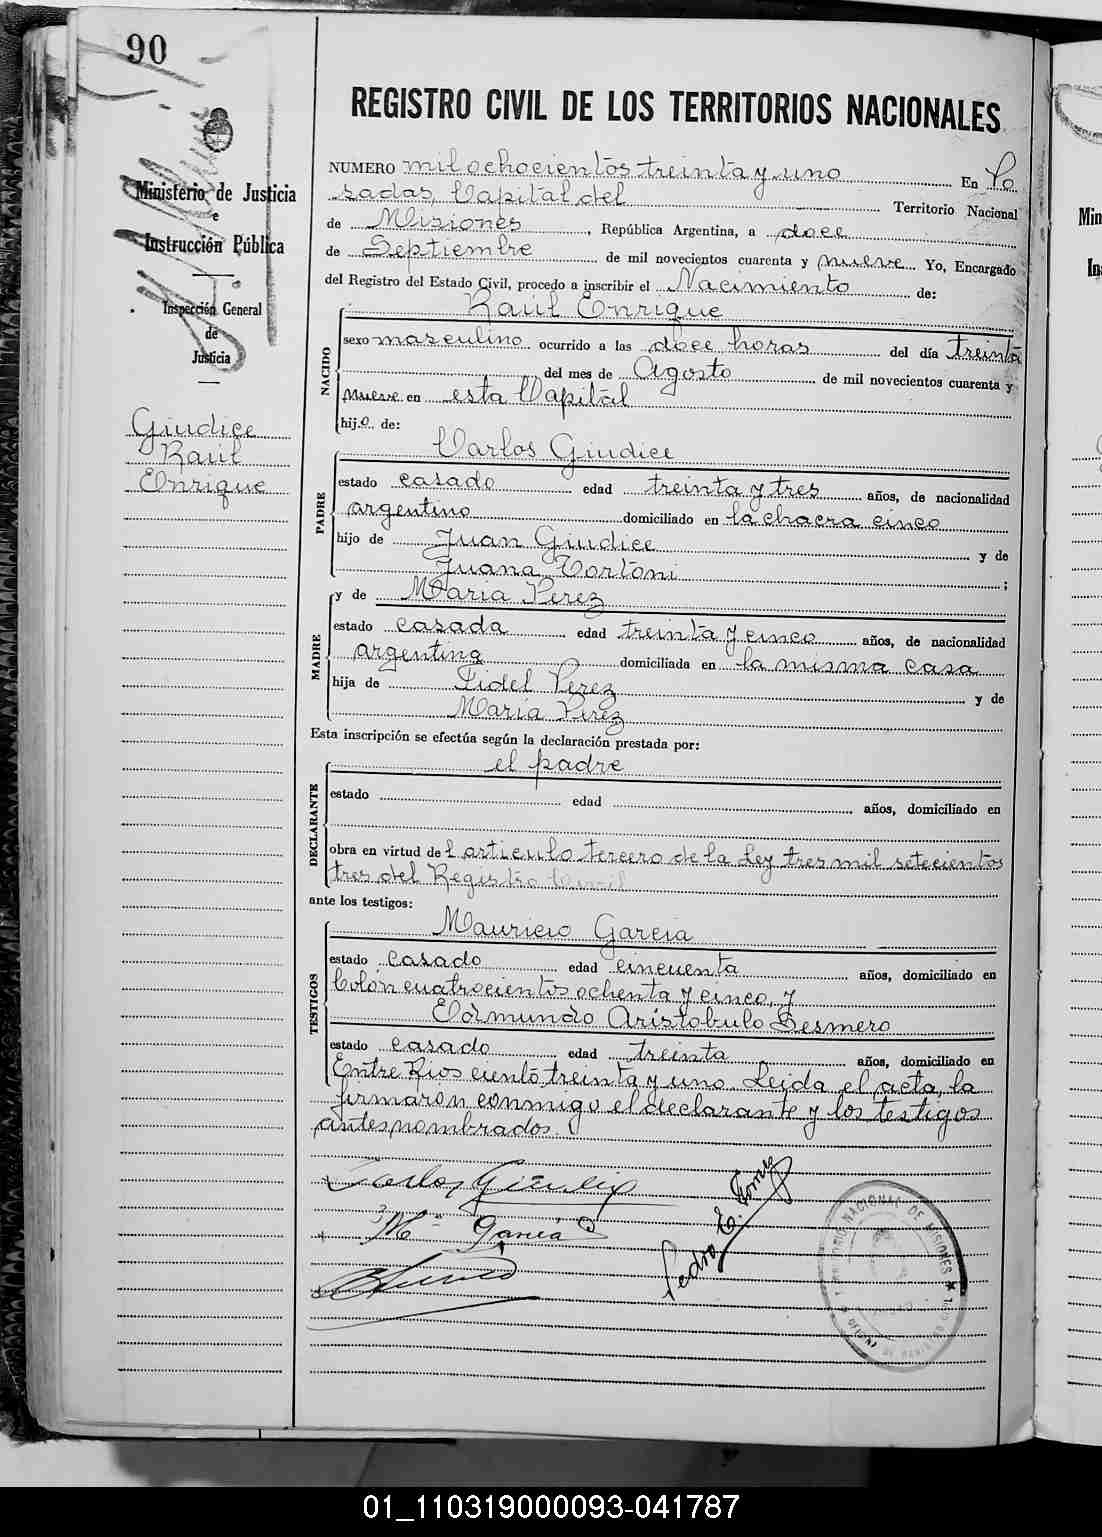 90
Ministerio de Justicia
e
Instrucción Pública
Inspección General
de
Justicia
Giudice
Raúl
Enrique
REGISTRO CIVIL DE LOS TERRITORIOS NACIONALES
NUMERO mil ochocientos treinta y uno En Po
sadas, Capital del Territorio Nacional
de Misiones, República Argentina, a doce
de Septiembre de mil novecientos cuarenta y nueve Yo, Encargado
del Registro del Estado Civil, procedo a inscribir el Nacimiento de:
NACIDO
Raúl Enrique
sexo masculino ocurrido a las doce horas del día treinta
del mes de Agosto de mil novecientos cuarenta y
nueve en esta Capital
hijo de:
PADRE
Carlos Giudice
estado casado edad treinta y tres años, de nacionalidad
argentino domiciliado en la chacra cinco
hijo de Juan Giudice y de
Juana Tortoni;
MADRE
y de Maria Perez
estado casada edad treinta y cinco años, de nacionalidad
argentina domiciliada en la misma casa
hija de Fidel Perez y de
Maria Perez
Esta inscripción se efectúa según la declaración prestada por:
DECLARANTE
el padre
estado edad años, domiciliado en
obra en virtud del articulo tercero de la Ley tres mil setecientos
tres del Registro Civil
ante los testigos:
TESTIGOS
Mauricio Garcia
estado casado edad cincuenta años, domiciliado en
Colón cuatrocientos ochenta y cinco, y
Edmundo Aristobulo Lesmero
estado casado edad treinta años, domiciliado en
Entre Rios ciento treinta y uno. Leida el acta, la
firmaron conmigo el declarante y los testigos
antes nombrados.
Carlos Giudice
M. Garcia
Pedro E.
TERRITORIO NACIONAL DE MISIONES
Min
In
01_110319000093-041787